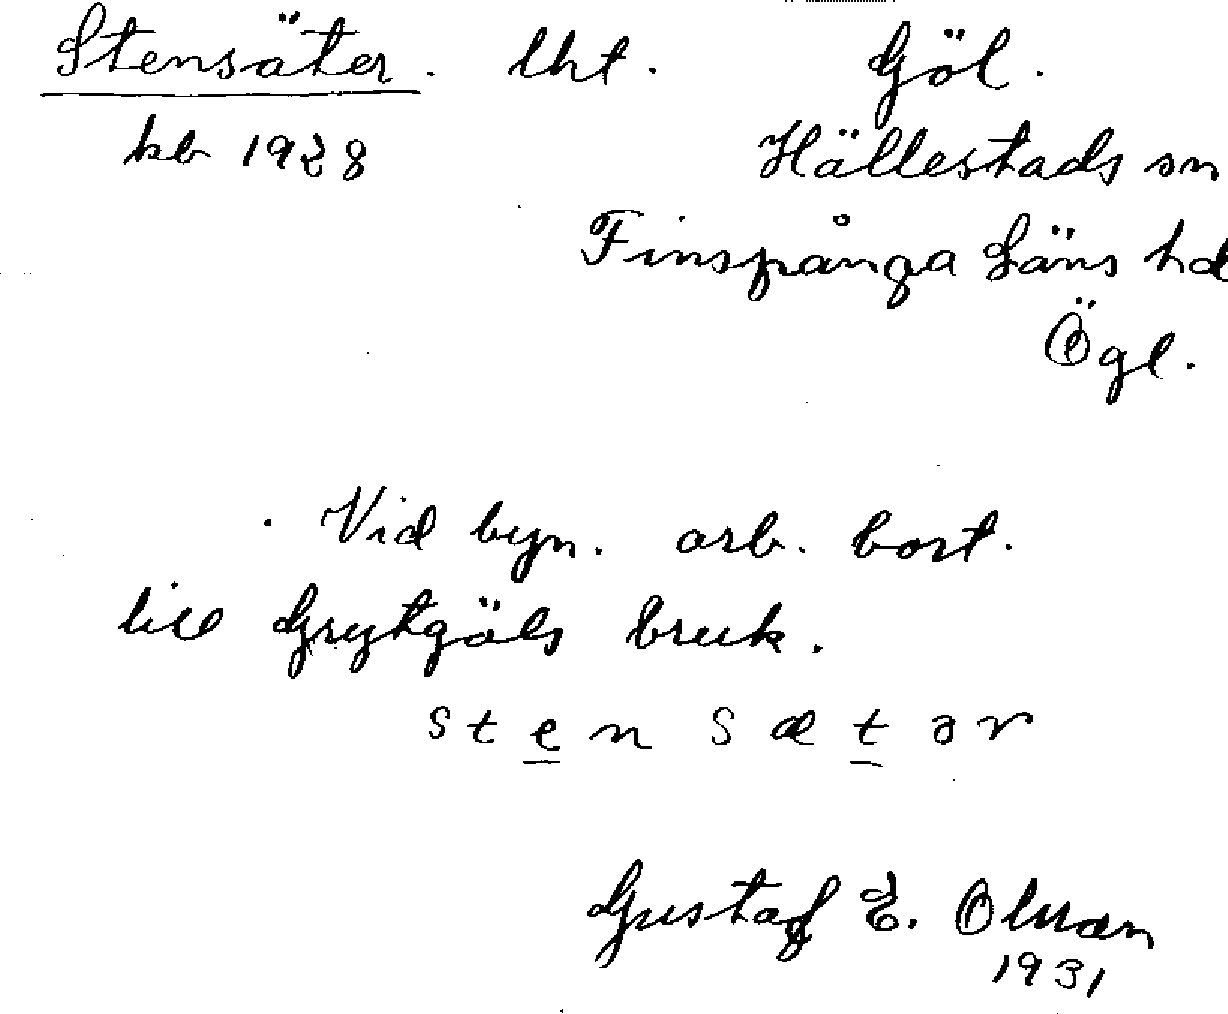 Stensäter. lht. Göl.
kb 1928 Hällestads sn
Finspånga Läns hd
Ögl.
Vid byn. arb. bost.
till Grytgöls bruk.
sten sætər
Gustaf E. Olman
1931